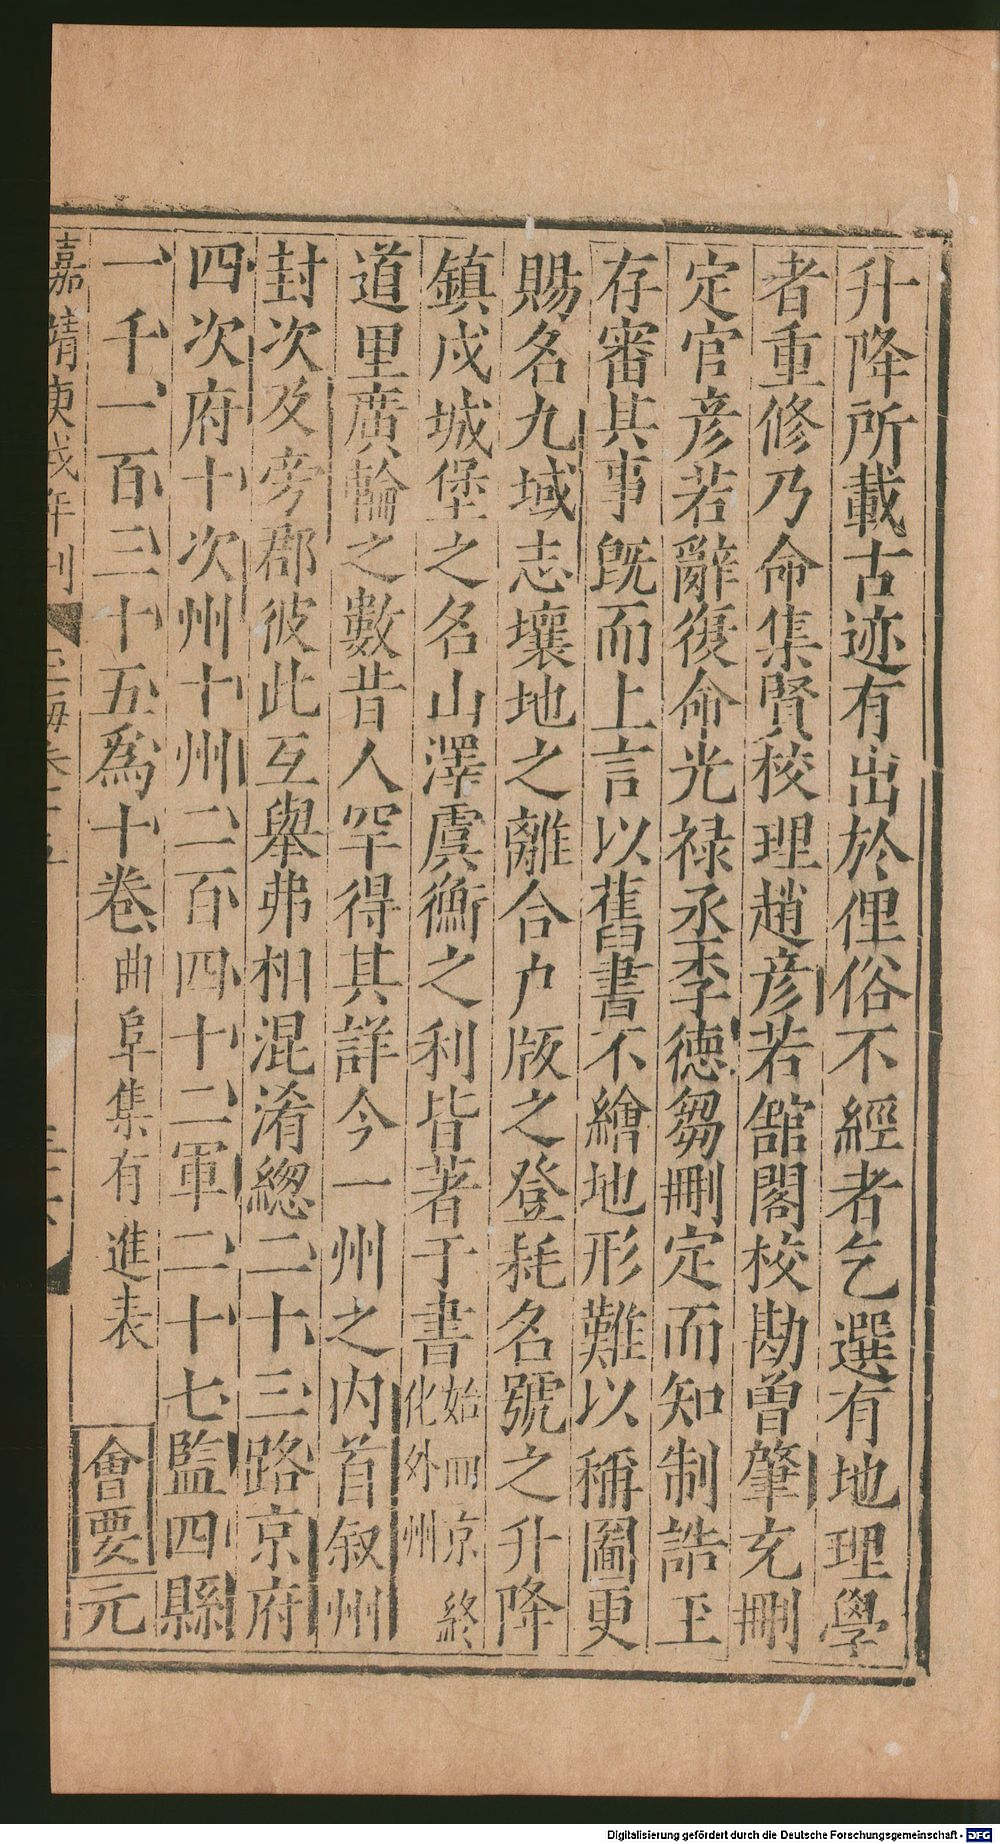 升降所載古迹有出於俚俗不經者乞選有地理學
者重修乃命集賢校理趙彦若舘閣校勘曾肇充刪
定官彦若辭復命光禄丞李德芻刪定而知制誥王
存審其事旣而上言以舊書不繪地形難以稱圖更
賜名九域志壤地之離合户版之登耗名號之升降
鎮戍城堡之名山澤虞衡之利皆著于書始四京終
化外州
道里廣輪之數昔人罕得其詳今一州之内首叙州
封次及旁郡彼此互舉弗相混淆總二十三路京府
四次府十次州十州二百四十二軍二十七監四縣
一千一百三十五爲十卷曲阜集有進表會要元
嘉靖庚戌年刊
Digitalisierung gefördert durch die Deutsche Forschungsgemeinschaft - DFG